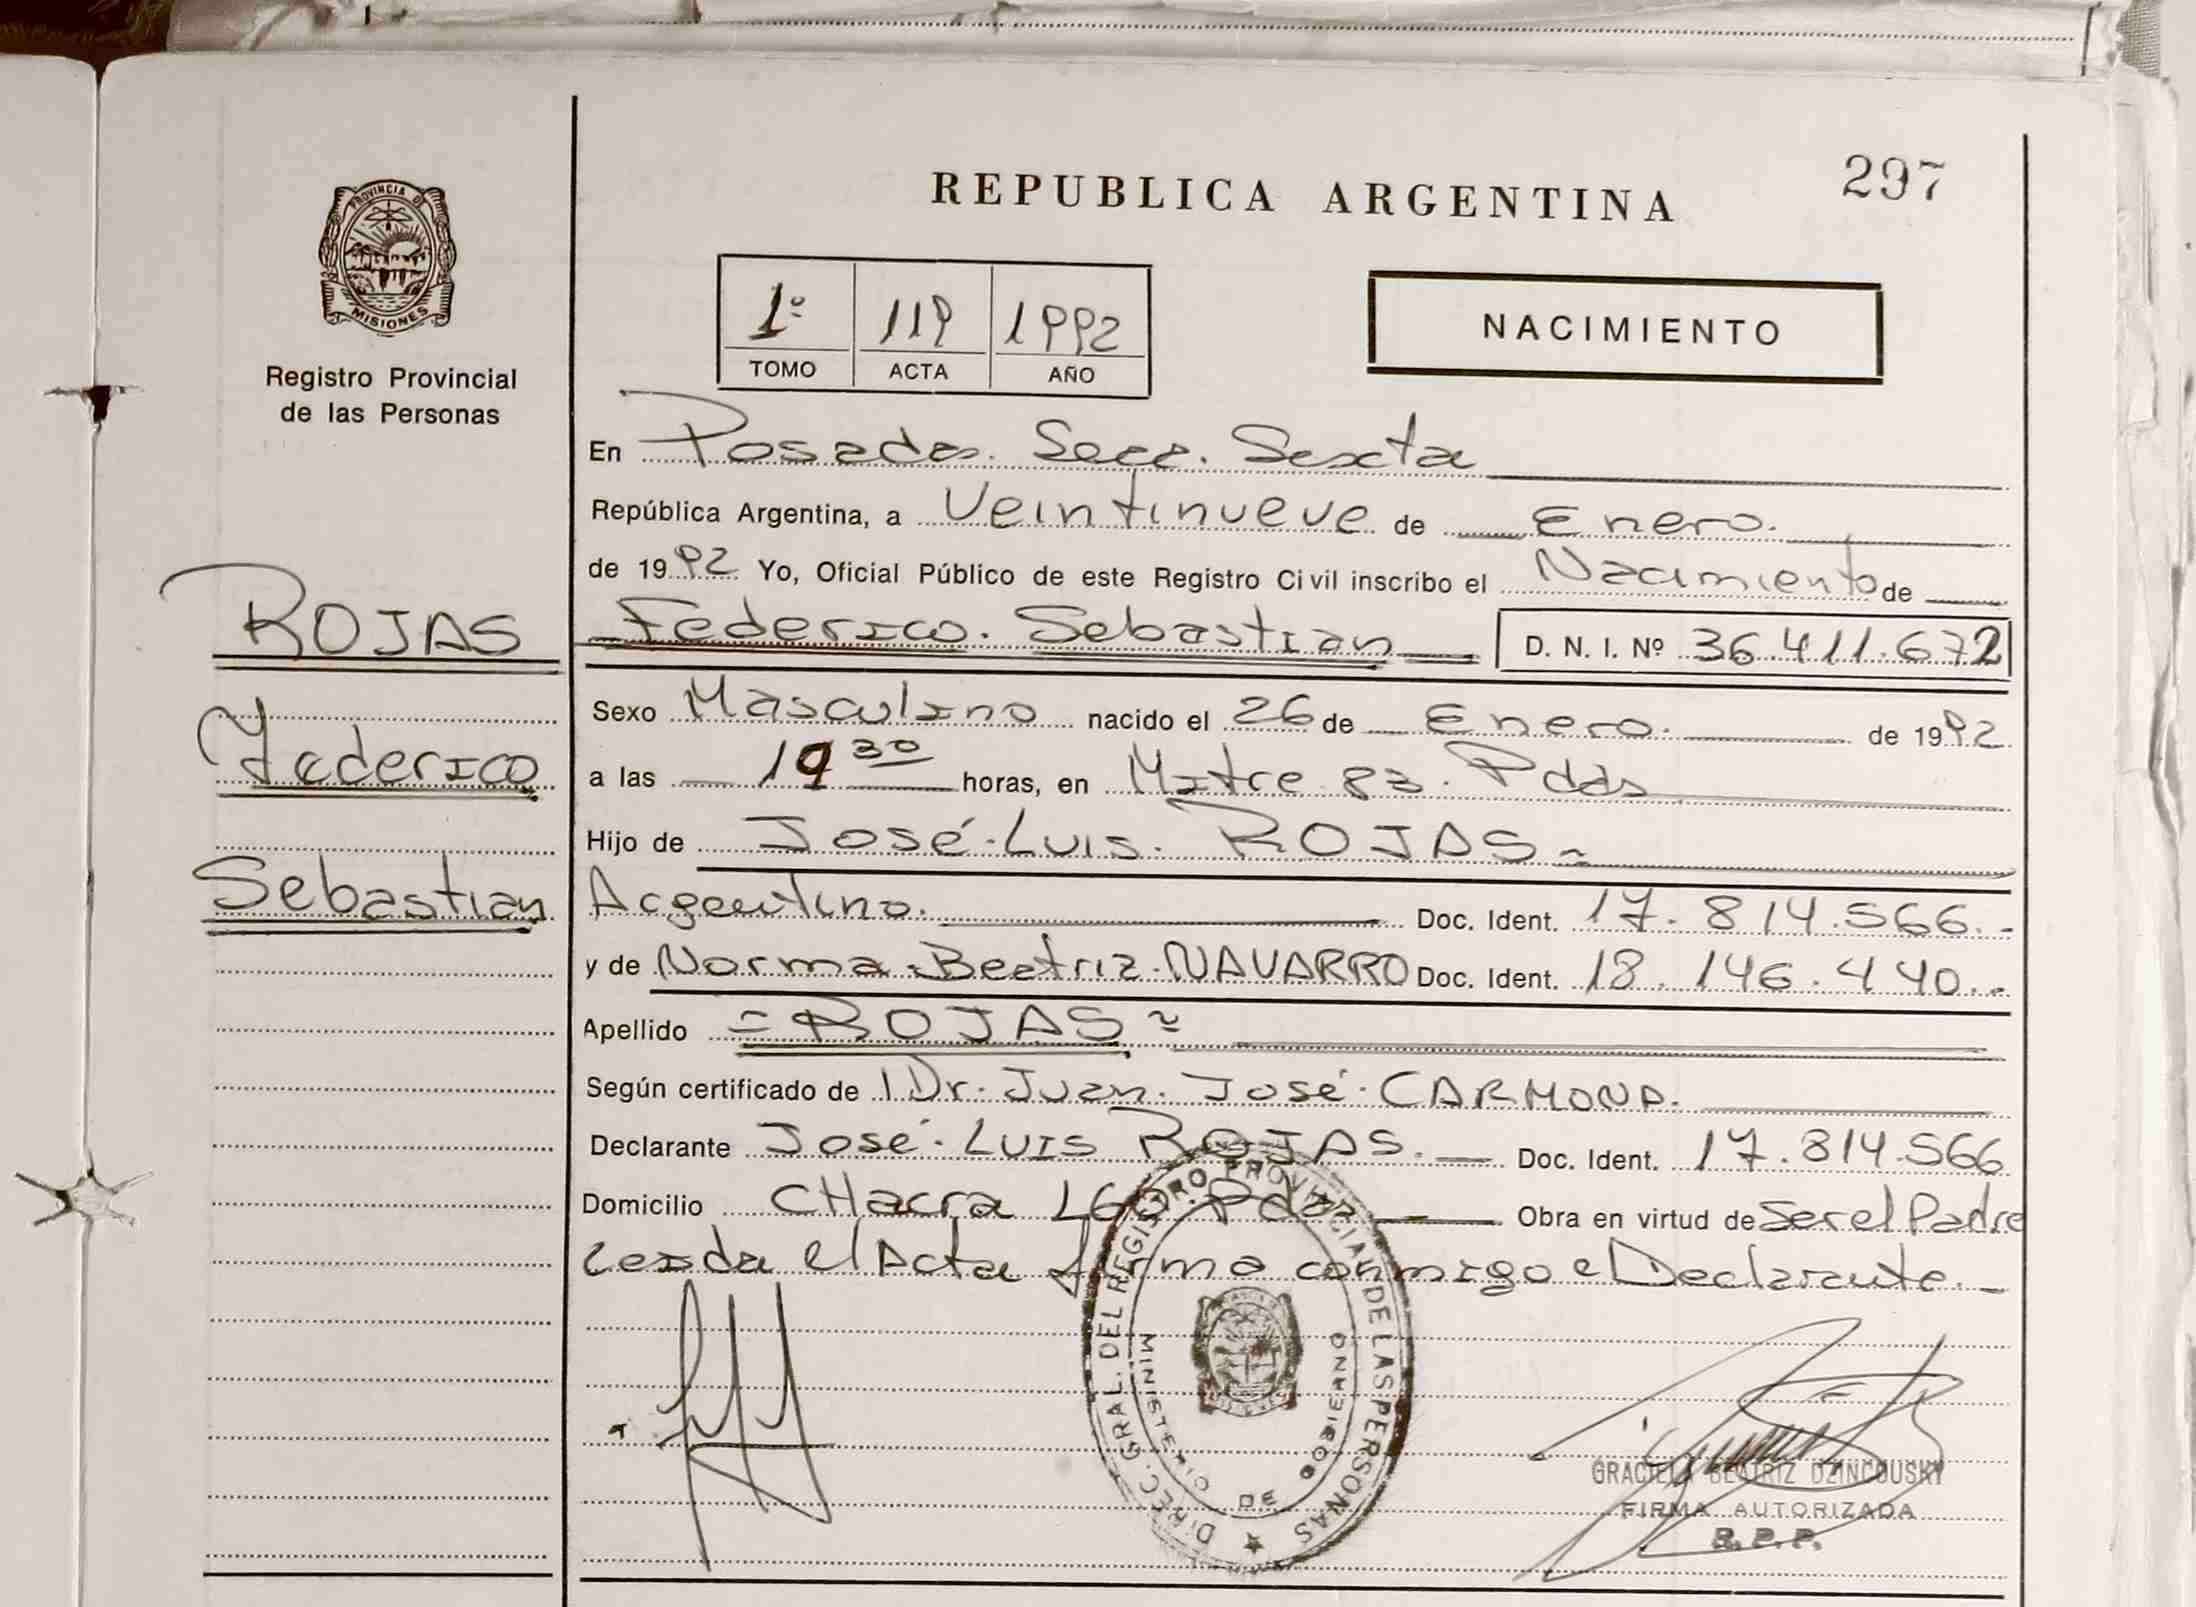 REPUBLICA ARGENTINA
297
PROVINCIA DE
MISIONES
Registro Provincial
de las Personas
1º 119 1992
TOMO ACTA AÑO
NACIMIENTO
En Posadas. Secc. Sexta
República Argentina, a Veintinueve de Enero.
de 1992 Yo, Oficial Público de este Registro Civil inscribo el Nacimiento de
ROJAS
Federico
Sebastian
Federico. Sebastian D. N. I. Nº 36.411.672
Sexo Masculino nacido el 26 de Enero. de 1992
a las 19 30 horas, en Mitre 83. Pdas
Hijo de José Luis. ROJAS
Argentino. Doc. Ident. 17.814.566.-
y de Norma Beatriz NAVARRO Doc. Ident. 18.146.440.-
Apellido = ROJAS =
Según certificado de Dr. Juan. José CARMONA.
Declarante José LUIS ROJAS. Doc. Ident. 17.814.566
Domicilio CHacra 160. Pdas Obra en virtud de Ser el Padre
Leida el Acta firma conmigo el Declarante.
DIREC. GRAL. DEL REGISTRO PROVINCIAL DE LAS PERSONAS
MINISTERIO DE GOBIERNO
GRACIELA BEATRIZ DZINCOUSKY
FIRMA AUTORIZADA
R. P. P.